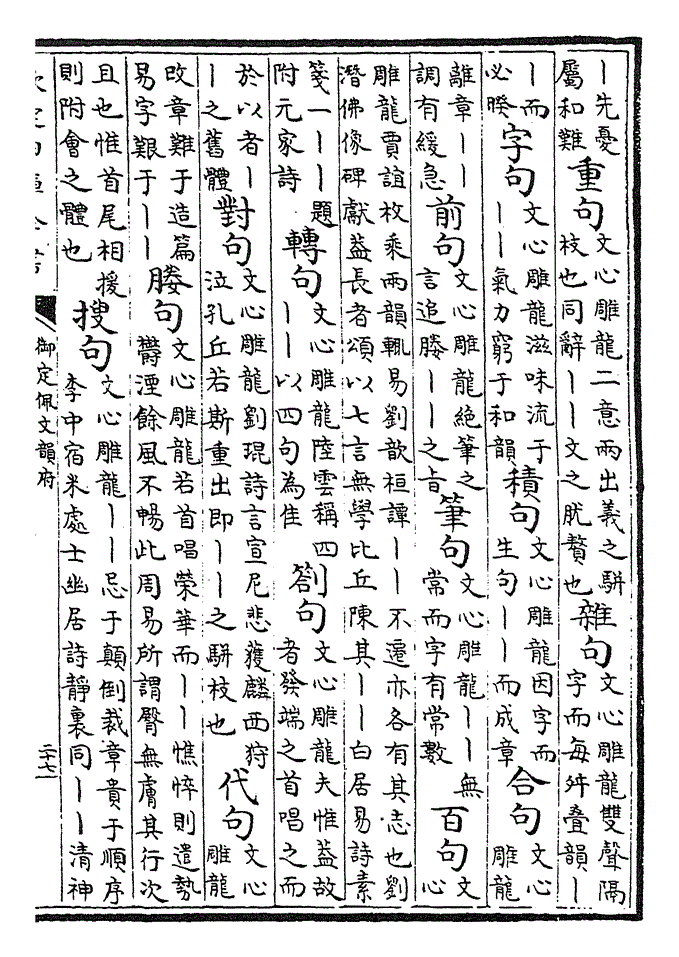 丨先憂屬和難重句文心雕龍二意兩出義之駢枝也同辭丨丨文之肬贅也雜句文心雕龍雙聲隔字而每舛疊韻丨
丨而必睽字句文心雕龍滋味流于丨丨氣力窮于和韻積句文心雕龍因字而生句丨丨而成章合句文心雕龍
離章丨丨調有緩急前句文心雕龍絕筆之言追媵丨丨之旨筆句文心雕龍丨丨無常而字有常數百句文心
雕龍賈誼枚乘兩韻輒易劉歆桓譚丨丨不遷亦各有其志也劉潛佛像碑獻葢長者頌以七言無學比丘陳其丨丨白居易詩素
箋一丨丨題附元家詩轉句文心雕龍陸雲稱四丨丨以四句為佳劄句文心雕龍夫惟葢故者發端之首唱之而
於以者丨丨之舊體對句文心雕龍劉琨詩言宣尼悲獲麟西狩泣孔丘若斯重出即丨丨之駢枝也代句文心雕龍
改章難于造篇易字艱于丨丨媵句文心雕龍若首唱榮華而丨丨憔悴則遺勢鬱湮餘風不暢此周易所謂臀無膚其行次
且也惟首尾相援則附會之體也搜句文心雕龍丨丨忌于顛倒裁章貴于順序李中宿米處士幽居詩靜裏同丨丨清神
御定佩文韻府
二十七